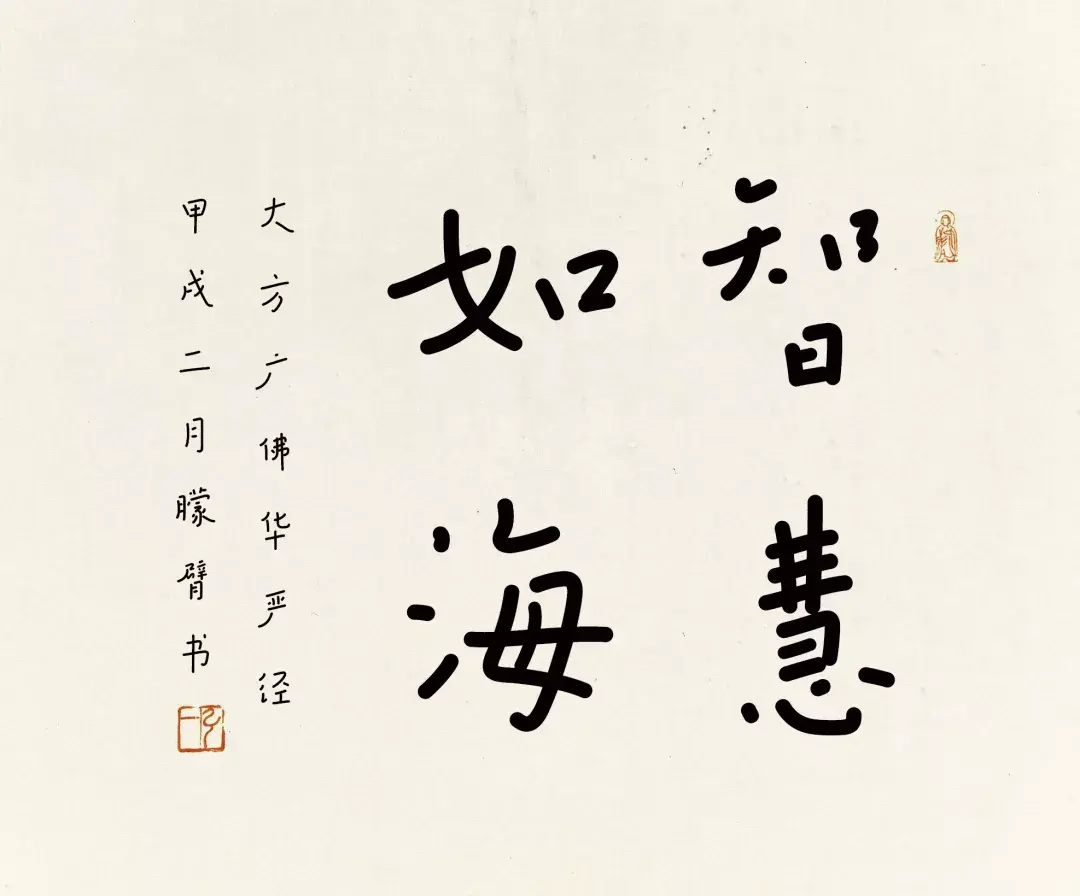 智慧
如海
大方广佛华严经
甲戌二月朦臂书